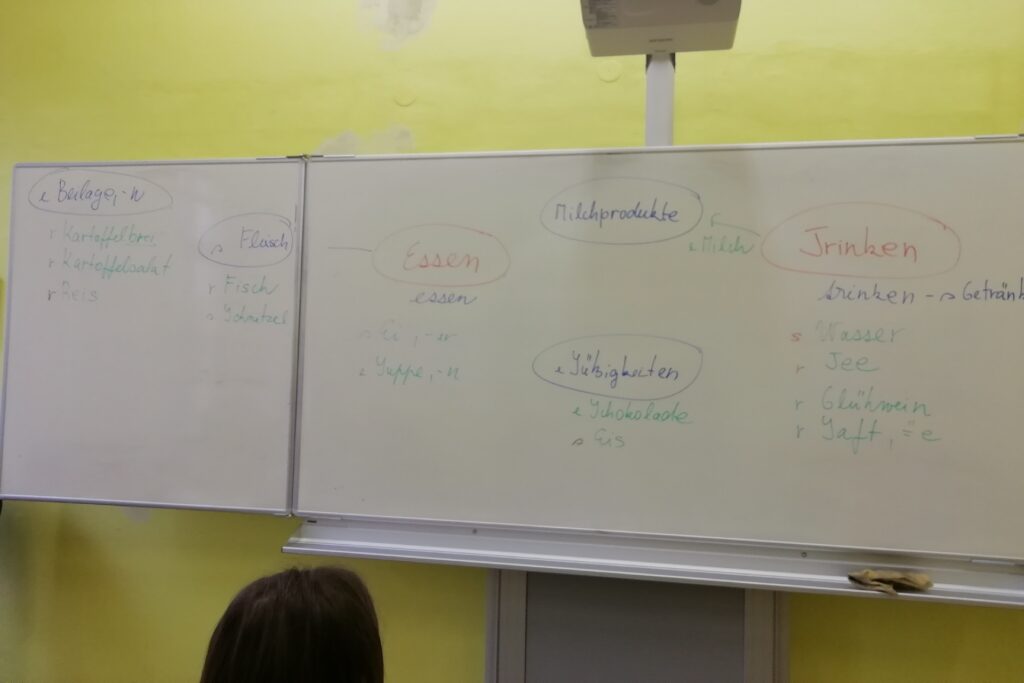 e Beilage, -n
r Kartoffelbrei
r Kartoffelsalat
r Reis
s Fleisch
r Fisch
s Schnitzel
Essen
essen
s Ei, -er
e Suppe, -n
Milchprodukte
e Milch
e Süßigkeiten
e Schokolade
s Eis
Trinken
trinken - s Getränk
s Wasser
r Tee
r Glühwein
r Saft, ¨e